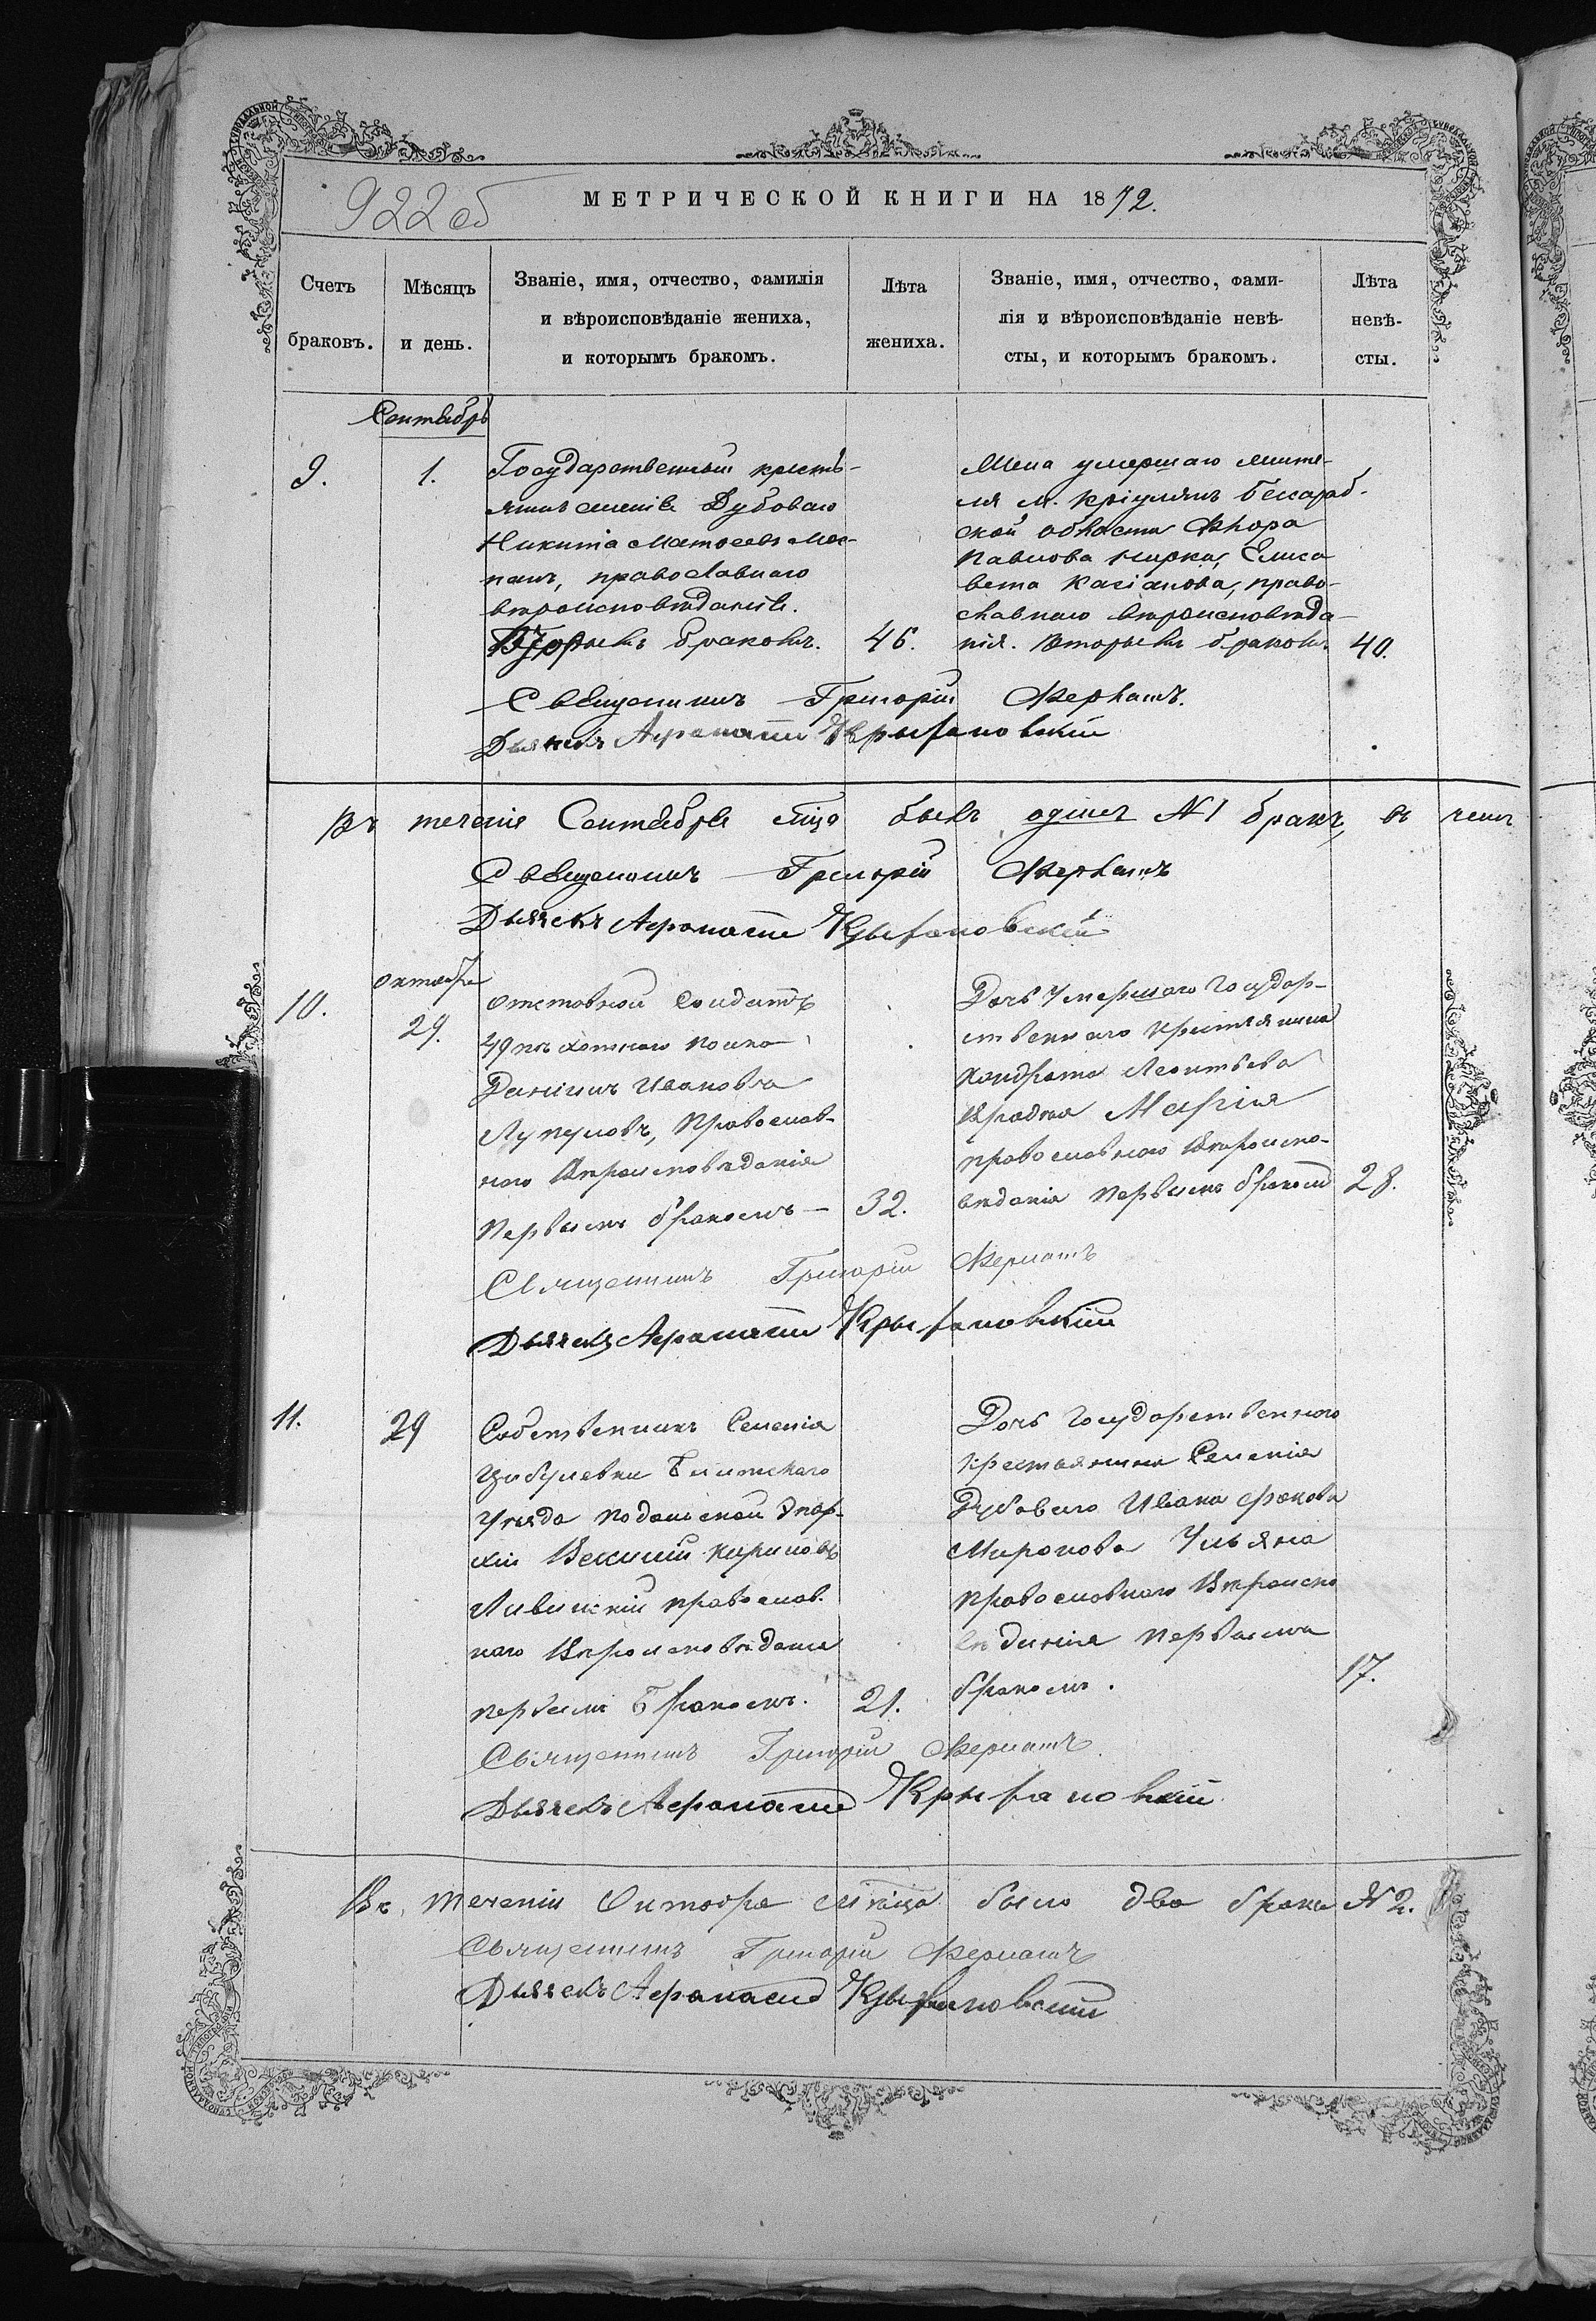 922 об
МЕТРИЧЕСКОЙ КНИГИ НА 1872.
Счетъ браковъ.
Мѣсяцъ и день.
Званіе, имя, отчество, фамилія
и вѣроисповѣданіе жениха,
и которымъ бракомъ.
Лѣта жениха.
Званіе, имя, отчество, фами-
лія и вѣроисповѣданіе невѣ-
сты, и которымъ бракомъ.
Лѣта невѣ-
сты.
Сентябрь
9.
1.
Государственный кресть-
янинъ селенія Дубоваго
Никита Матѳеевъ
православнаго
вѣроисповѣданія.
Вторымъ бракомъ.
46.
Жена умершаго жите-
ля м. Кріулянъ Бессараб-
ской области
Павлова Елиса
вета Касіанова, право-
славнаго вѣроисповѣда-
нія. Вторымъ бракомъ
40.
Священникъ Григорій
Дьячекъ Аѳанасій Крыжановскій
Въ теченіе Сентября мѣсяца былъ одинъ №1 бракъ, въ чемъ
Священникъ Григорій
Дьячекъ Аѳанасій Крыжановскій
10.
октября
29.
отставной Солдатъ
49 пѣхотнаго полка
Даніилъ Ивановъ
Лупуловъ, Православ-
наго Вѣроисповѣданія
Первымъ бракомъ —
32.
Дочь Умершаго Государ-
ственнаго Крестьянина
Кондрата Леонтьева
Марія
православнаго Вѣроиспо-
вѣданія Первымъ бракомъ
28.
Священникъ Григорій
Дьячекъ Аѳанасій Крыжановскій
11.
29
Собственникъ Селенія
Цыбулевки Балтскаго
Уѣзда Подольской Эпар-
хіи Кириловъ
православ-
наго Вѣроисповѣданія
первымъ Бракомъ.
21.
Дочь Государственнаго
Крестьянина Селенія
Дубоваго Ивана
Миронова Ульяна
Православнаго Вѣроиспо
вѣданія Первымъ
бракомъ.
17.
Священникъ Григорій
Дьячекъ Аѳанасій Крыжановскій
Въ теченіи Октября мѣсяца было два брака №2.
Священникъ Григорій
Дьячекъ Аѳанасій Крыжановскій